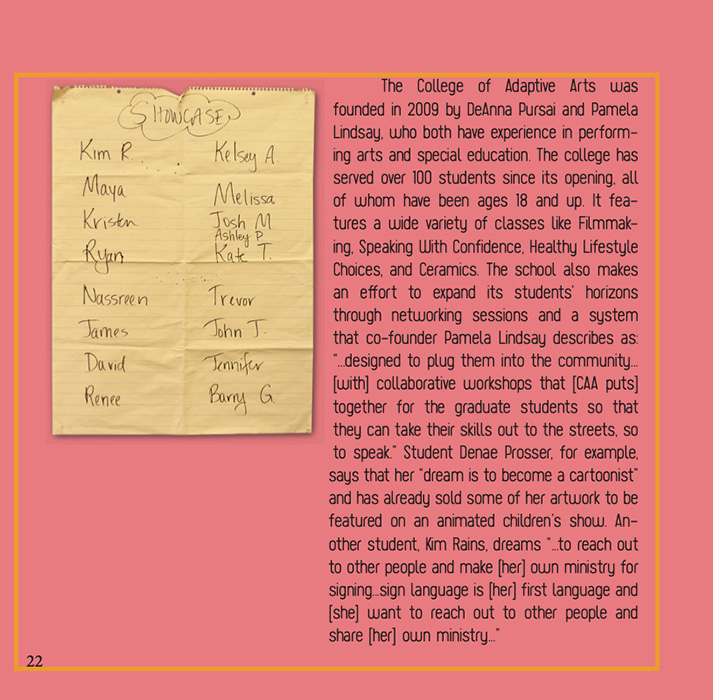 SHOWCASE
Kim R.
Maya
Kristen
Ryan
Nassreen
James
David
Renee
Kelsey A.
Melissa
Josh M
Ashley P
Kate T.
Trevor
John T.
Jennifer
Barry G.
The College of Adaptive Arts was
founded in 2009 by DeAnna Pursai and Pamela
Lindsay, who both have experience in perform-
ing arts and special education. The college has
served over 100 students since its opening, all
of whom have been ages 18 and up. It fea-
tures a wide variety of classes like Filmmak-
ing, Speaking With Confidence, Healthy Lifestyle
Choices, and Ceramics. The school also makes
an effort to expand its students' horizons
through networking sessions and a system
that co-founder Pamela Lindsay describes as:
"...designed to plug them into the community...
[with] collaborative workshops that [CAA puts]
together for the graduate students so that
they can take their skills out to the streets, so
to speak." Student Denae Prosser, for example,
says that her "dream is to become a cartoonist"
and has already sold some of her artwork to be
featured on an animated children's show. An-
other student, Kim Rains, dreams "...to reach out
to other people and make [her] own ministry for
signing...sign language is [her] first language and
[she] want to reach out to other people and
share [her] own ministry..."
22